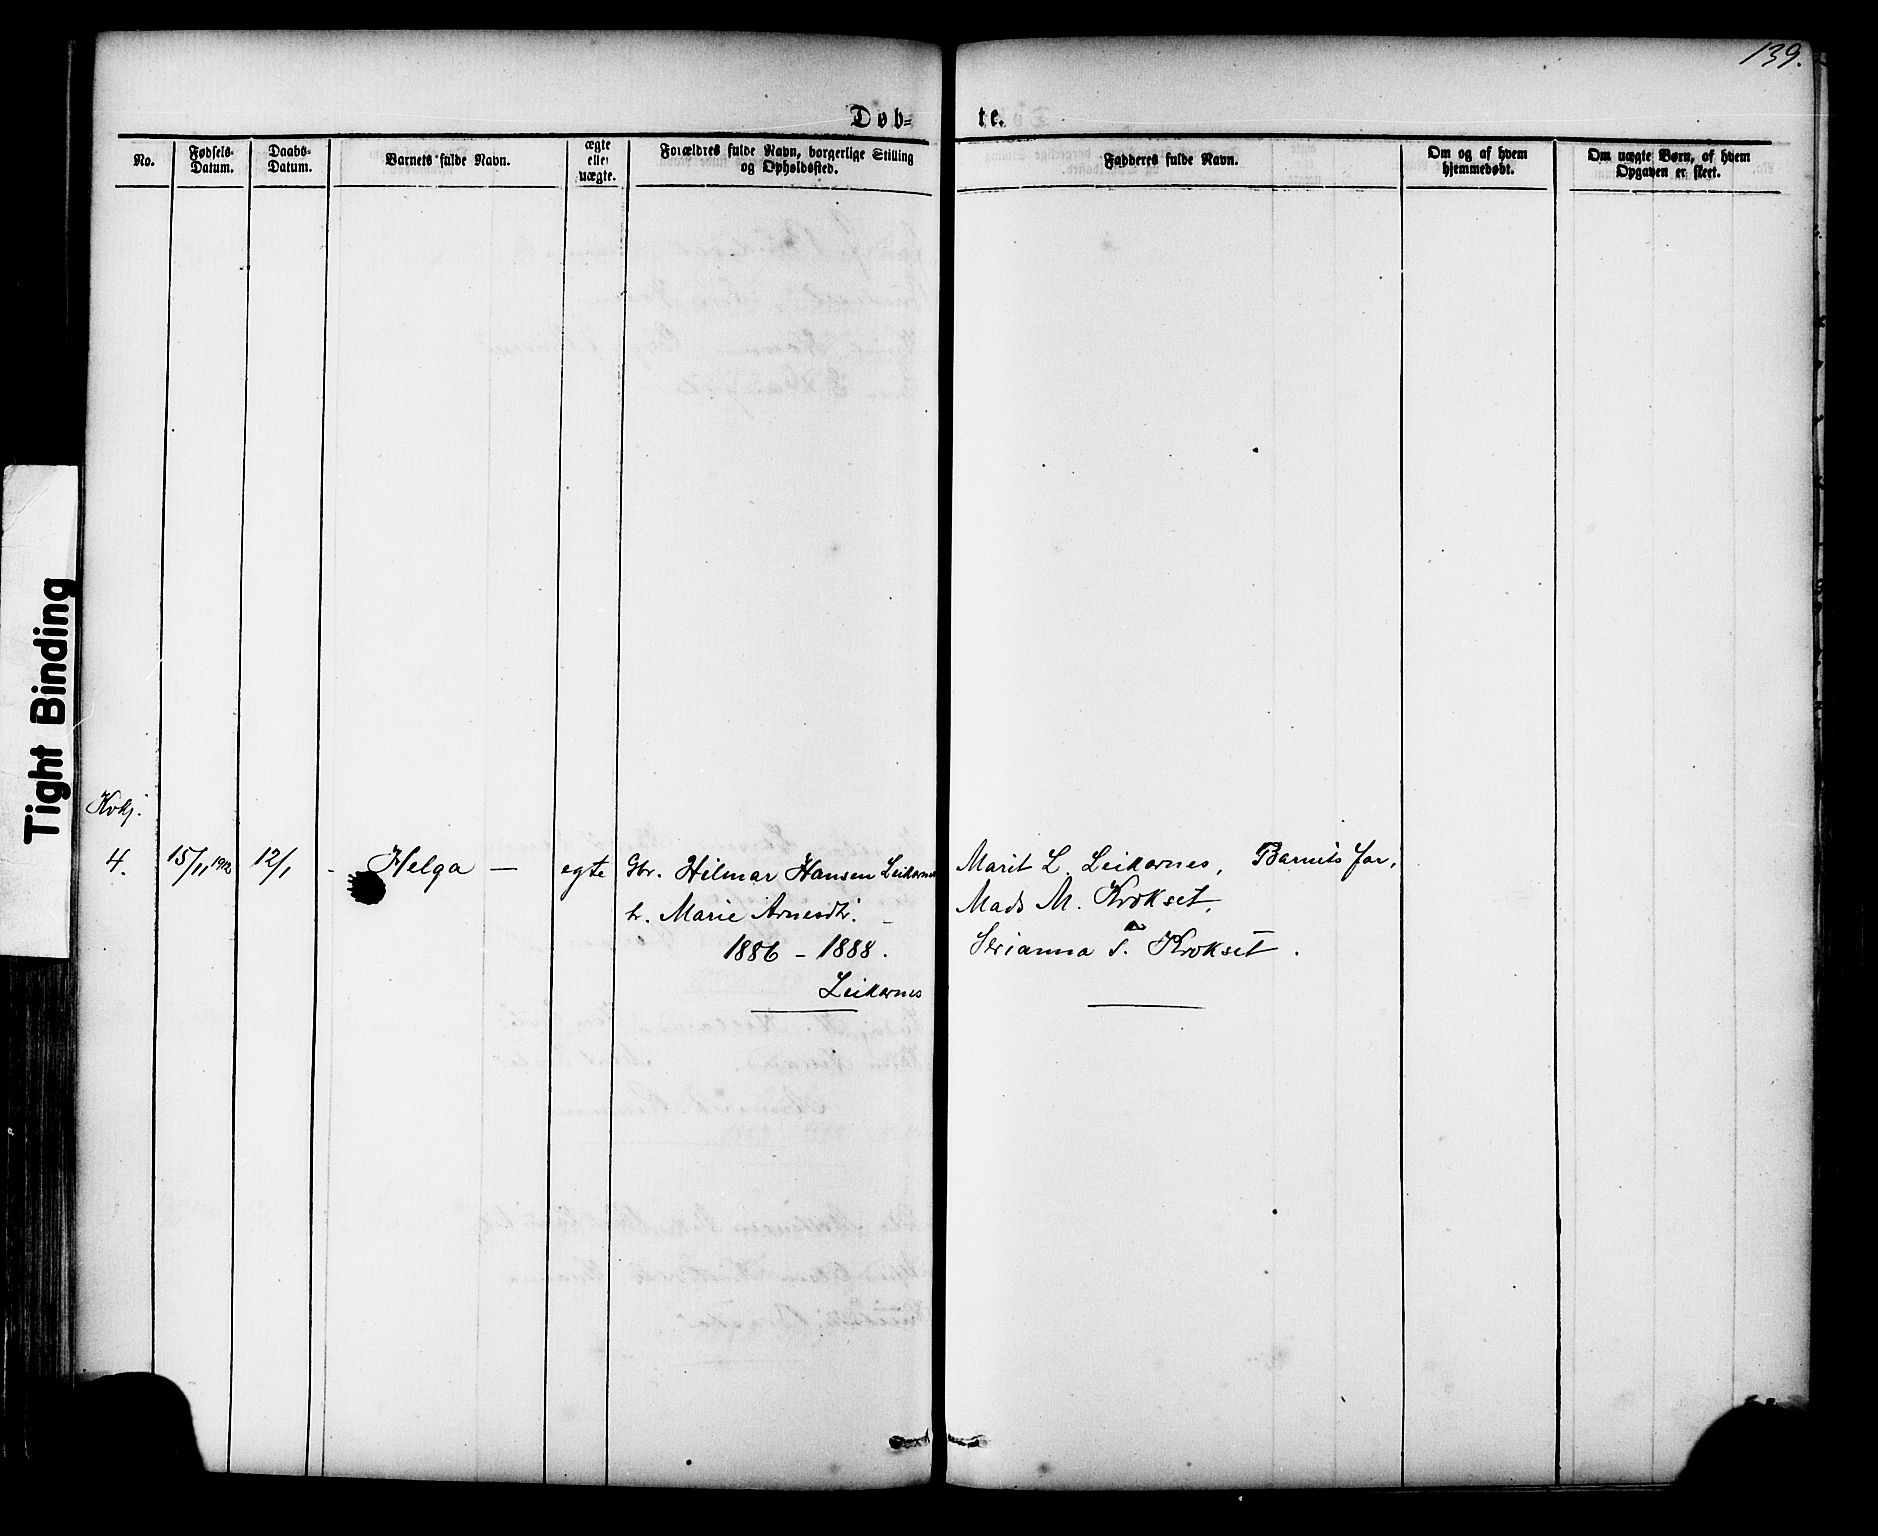 139.
Døb- te.
No.
Fødsels-
Datum.
Daabs-
Datum.
Barnets fulde Navn.
ægte
eller
uægte.
Forældres fulde Navn, borgerlige Stilling
og Opholdssted.
Fadderes fulde Navn.
Om og af hvem
hjemmedøbt.
Om uægte Børn, af hvem
Opgaven er skeet.
Kvkj.
4. 15/11 1912 12/1 - Helga — egte Gbr. Hilmar Hansen Leikarnes
h. Marie Arnesdtr. -
1886 - 1888.
Leikarnes
Marit L. Leikarnes, Barnets far,
Mads M. Krokset,
T. Krokset.
Tight Binding